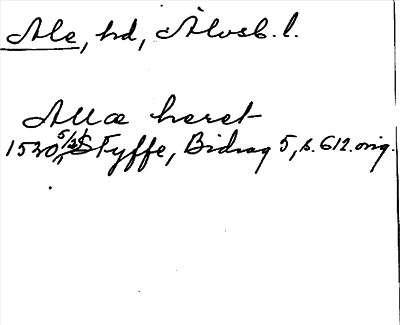 Ale, hd, Älvsb. l.
Allæ heret
1530 5/12 Styffe, Bidrag 5, s. 612. orig.